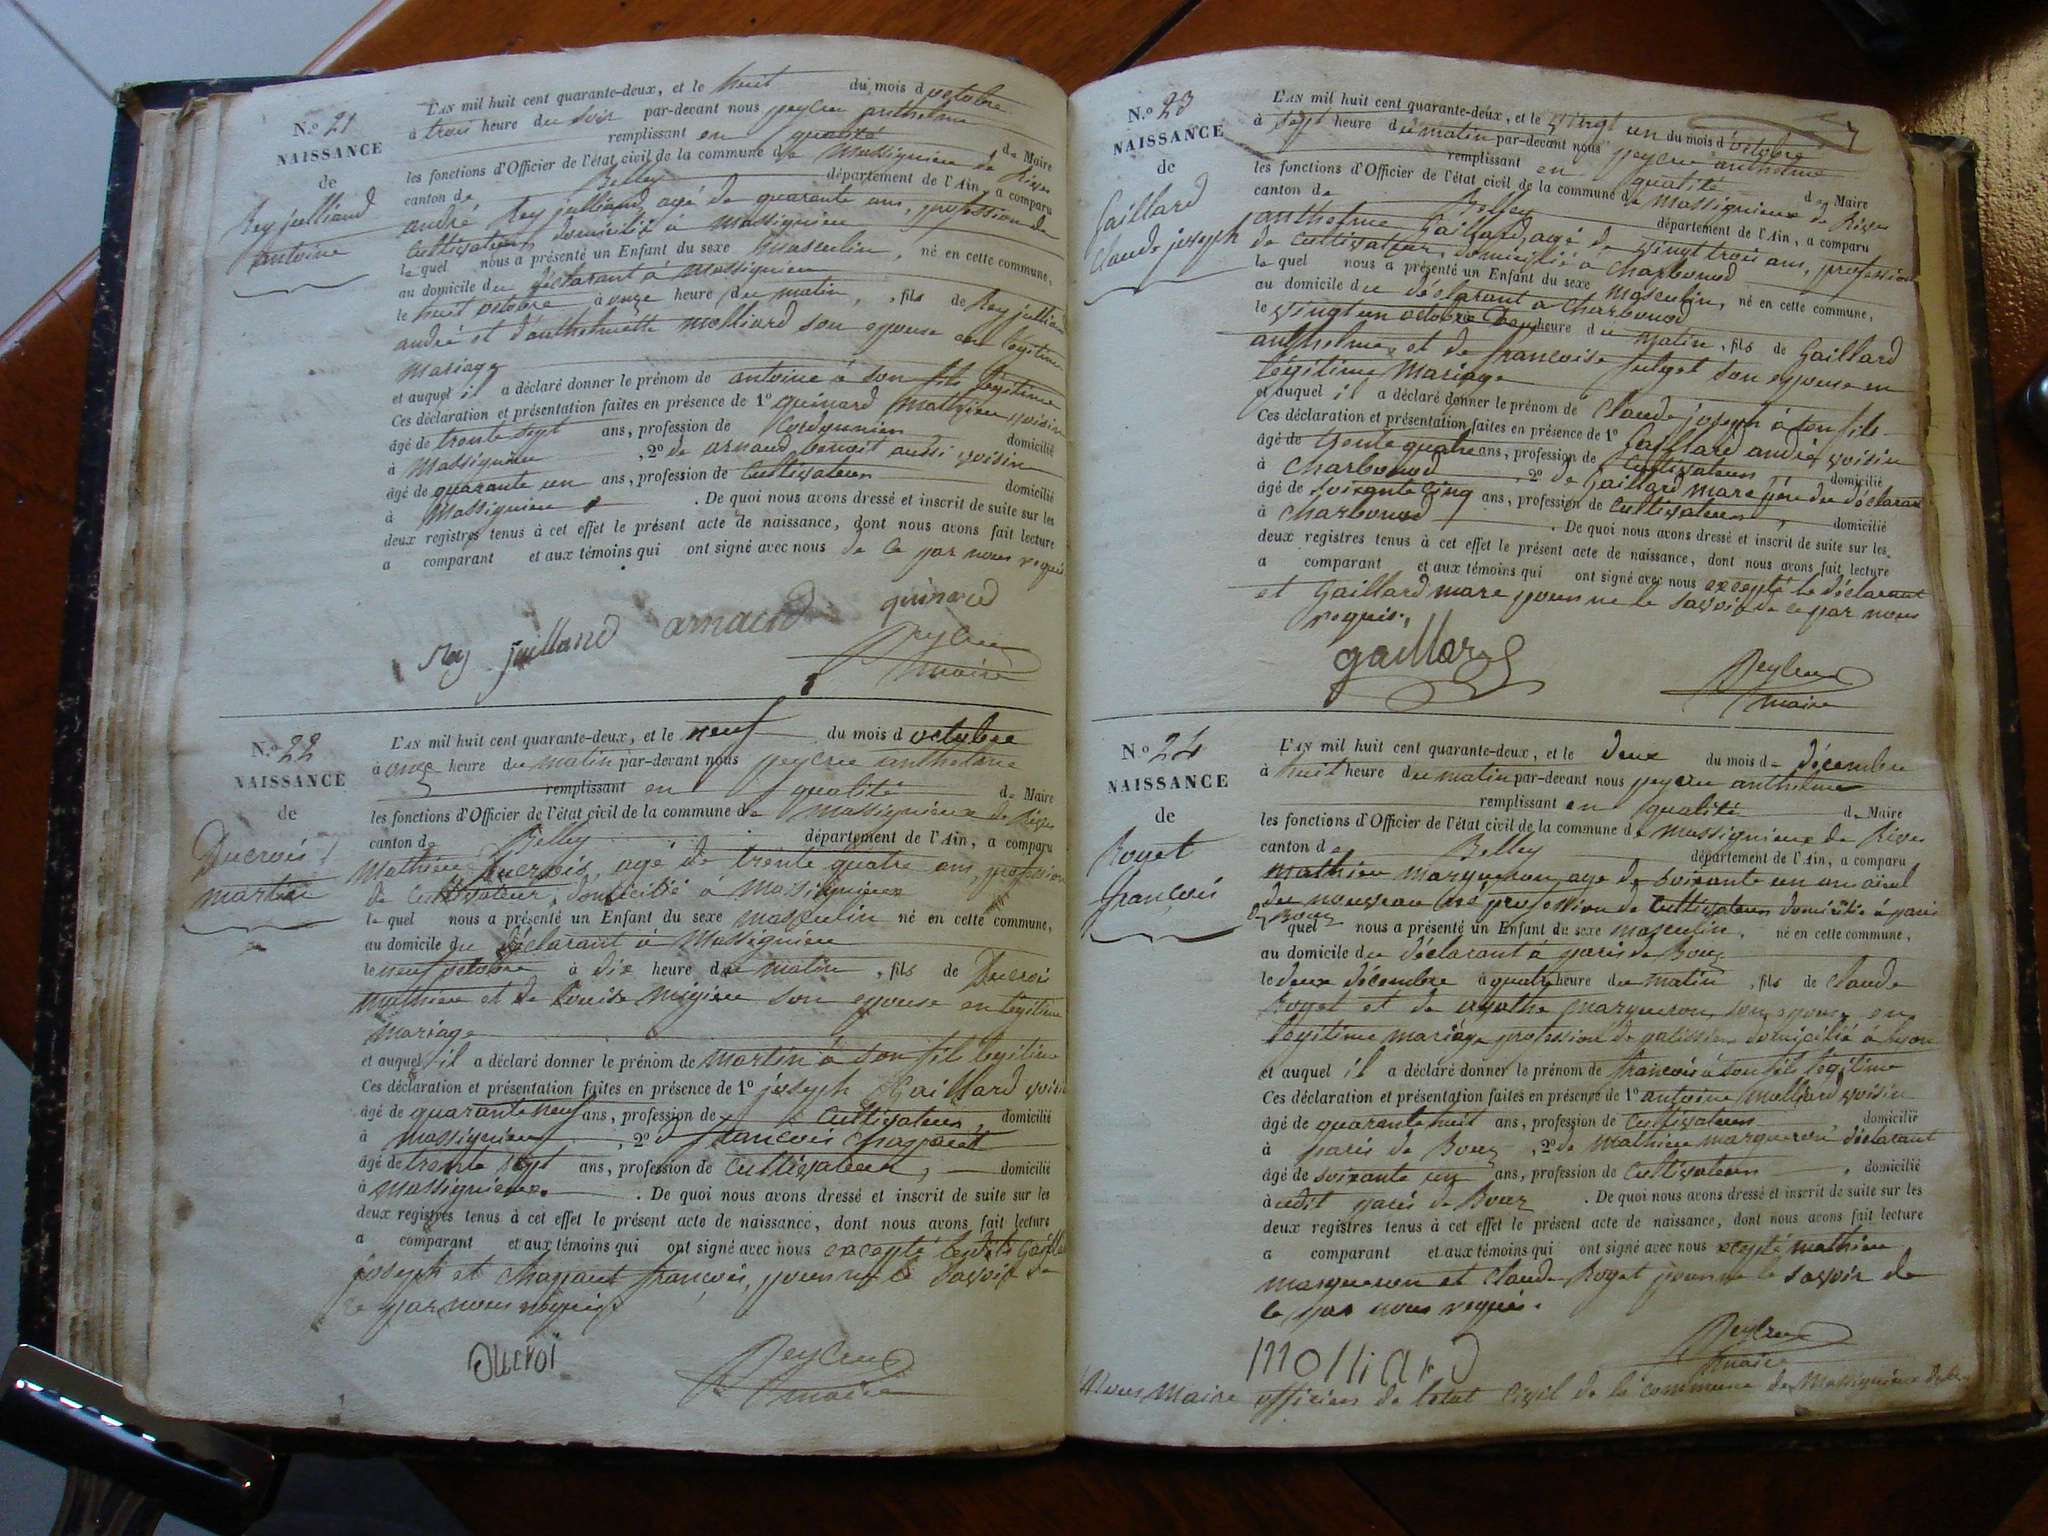 N.º 21
NAISSANCE
de
Rey juilliand
antoine
L'AN mil huit cent quarante-deux, et le huit du mois d octobre
à trois heure du soir par-devant nous peycru anthelme
remplissant en qualité de Maire
les fonctions d'Officier de l'état civil de la commune de Massignieu de Rives
canton de Belley département de l'Ain, a comparu
andré Rey juilliand, agé de quarante ans, profession de
Cultivateur, domicilié à Massignieu
le quel nous a présenté un Enfant du sexe masculin, né en cette commune,
au domicile du déclarant à Massignieu
le huit octobre à onze heure du matin, fils de Rey juilliand
andré et d'anthelmette molliard son epouse en légitime
mariage
et auquel il a déclaré donner le prénom de antoine à son fils légitime
Ces déclaration et présentation faites en présence de 1º quinard mathieu voisin
âgé de trente sept ans, profession de Cordonnier domicilié
à Massignieu, 2º de arnaud benoit aussi voisin
âgé de quarante un ans, profession de Cultivateur domicilié
à Massignieu. De quoi nous avons dressé et inscrit de suite sur les
deux registres tenus à cet effet le présent acte de naissance, dont nous avons fait lecture
a comparant et aux témoins qui ont signé avec nous de ce par nous requis
Rey juilland arnaud quinard
Peycru
maire
N.º 22
NAISSANCE
de
Ducrois
martin
L'AN mil huit cent quarante-deux, et le neuf du mois d octobre
à onze heure du matin par-devant nous peycru anthelme
remplissant en qualité de Maire
les fonctions d'Officier de l'état civil de la commune de Massignieux de Rives
canton de Belley département de l'Ain, a comparu
Mathieu Ducrois, agé de trente quatre ans, profession
de Cultivateur, domicilié à Massignieux
le quel nous a présenté un Enfant du sexe masculin né en cette commune,
au domicile du déclarant à Massignieu
le neuf octobre à dix heure du matin, fils de Ducrois
Mathieu et de Louise son epouse en légitime
mariage
et auquel il a déclaré donner le prénom de martin à son fils légitime
Ces déclaration et présentation faites en présence de 1º joseph Gaillard voisin
âgé de quarante neuf ans, profession de Cultivateur, domicilié
à massignieu, 2º d françois Chapparet
âgé de trente sept ans, profession de Cultivateur, domicilié
à Massignieux. De quoi nous avons dressé et inscrit de suite sur les
deux registres tenus à cet effet le présent acte de naissance, dont nous avons fait lecture
a comparant et aux témoins qui ont signé avec nous excepté lesdits Gaillard
joseph et Chapparet françois, pour ne le savoir de
ce par nous requis.
Ducroi
Peycru
maire
N.º 23
NAISSANCE
de
Gaillard
Claude joseph
L'AN mil huit cent quarante-deux, et le vingt un du mois d'octobre
à sept heure du matin par-devant nous peycru anthelme
remplissant en qualité de Maire
les fonctions d'Officier de l'état civil de la commune de Massignieux de Rives
canton de Belley département de l'Ain, a comparu
anthelme Gaillard, agé de vingt trois ans, profession
de cultivateur, domicilié à Charbonod
le quel nous a présenté un Enfant du sexe masculin, né en cette commune,
au domicile du déclarant à Charbonod
le vingt un octobre heure du matin, fils de Gaillard
anthelme et de francoise son epouse en
légitime Mariage
et auquel il a déclaré donner le prénom de Claude joseph à son fils
Ces déclaration et présentation faites en présence de 1º Gaillard andré, voisin
âgé de trente quatre ans, profession de Cultivateur domicilié
à Charbonod, 2º de Gaillard marc père du déclarant
âgé de soixante cinq ans, profession de Cultivateur, domicilié
à Charbonod. De quoi nous avons dressé et inscrit de suite sur les
deux registres tenus à cet effet le présent acte de naissance, dont nous avons fait lecture
a comparant et aux témoins qui ont signé avec nous excepté le déclarant
et Gaillard marc pour ne le savoir de ce par nous
requis.
gaillard
Peycru
maire
N.º 24
NAISSANCE
de
Royet
françois
L'AN mil huit cent quarante-deux, et le deux du mois de décembre
à huit heure du matin par-devant nous peycru anthelme
remplissant en qualité de Maire
les fonctions d'Officier de l'état civil de la commune de Massignieux de Rives
canton de Belley département de l'Ain, a comparu
mathieu margueron agé de soixante un an aïeul
du nouveau né profession de Cultivateur domicilié à paris
de Bouz
quel nous a présenté un Enfant du sexe masculin, né en cette commune,
au domicile du déclarant à paris de Bouz
le deux décembre à quatre heure du matin, fils de Claude
Royet et de agathe margueron son epouse en
légitime mariage profession de domicilié à Lyon
et auquel il a déclaré donner le prénom de françois à son fils légitime
Ces déclaration et présentation faites en présence de 1º antoine molliard voisin
âgé de quarante huit ans, profession de Cultivateur domicilié
à paris de Bouz, 2º de mathieu margueron déclarant
âgé de soixante un ans, profession de Cultivateur, domicilié
à udit paris de Bouz. De quoi nous avons dressé et inscrit de suite sur les
deux registres tenus à cet effet le présent acte de naissance, dont nous avons fait lecture
a comparant et aux témoins qui ont signé avec nous excepté mathieu
margueron et Claude Royet pour ne le savoir de
ce par nous requis.
molliard
Peycru
maire
Nous Maire officier de l'etat Civil de la commune de Massignieu de